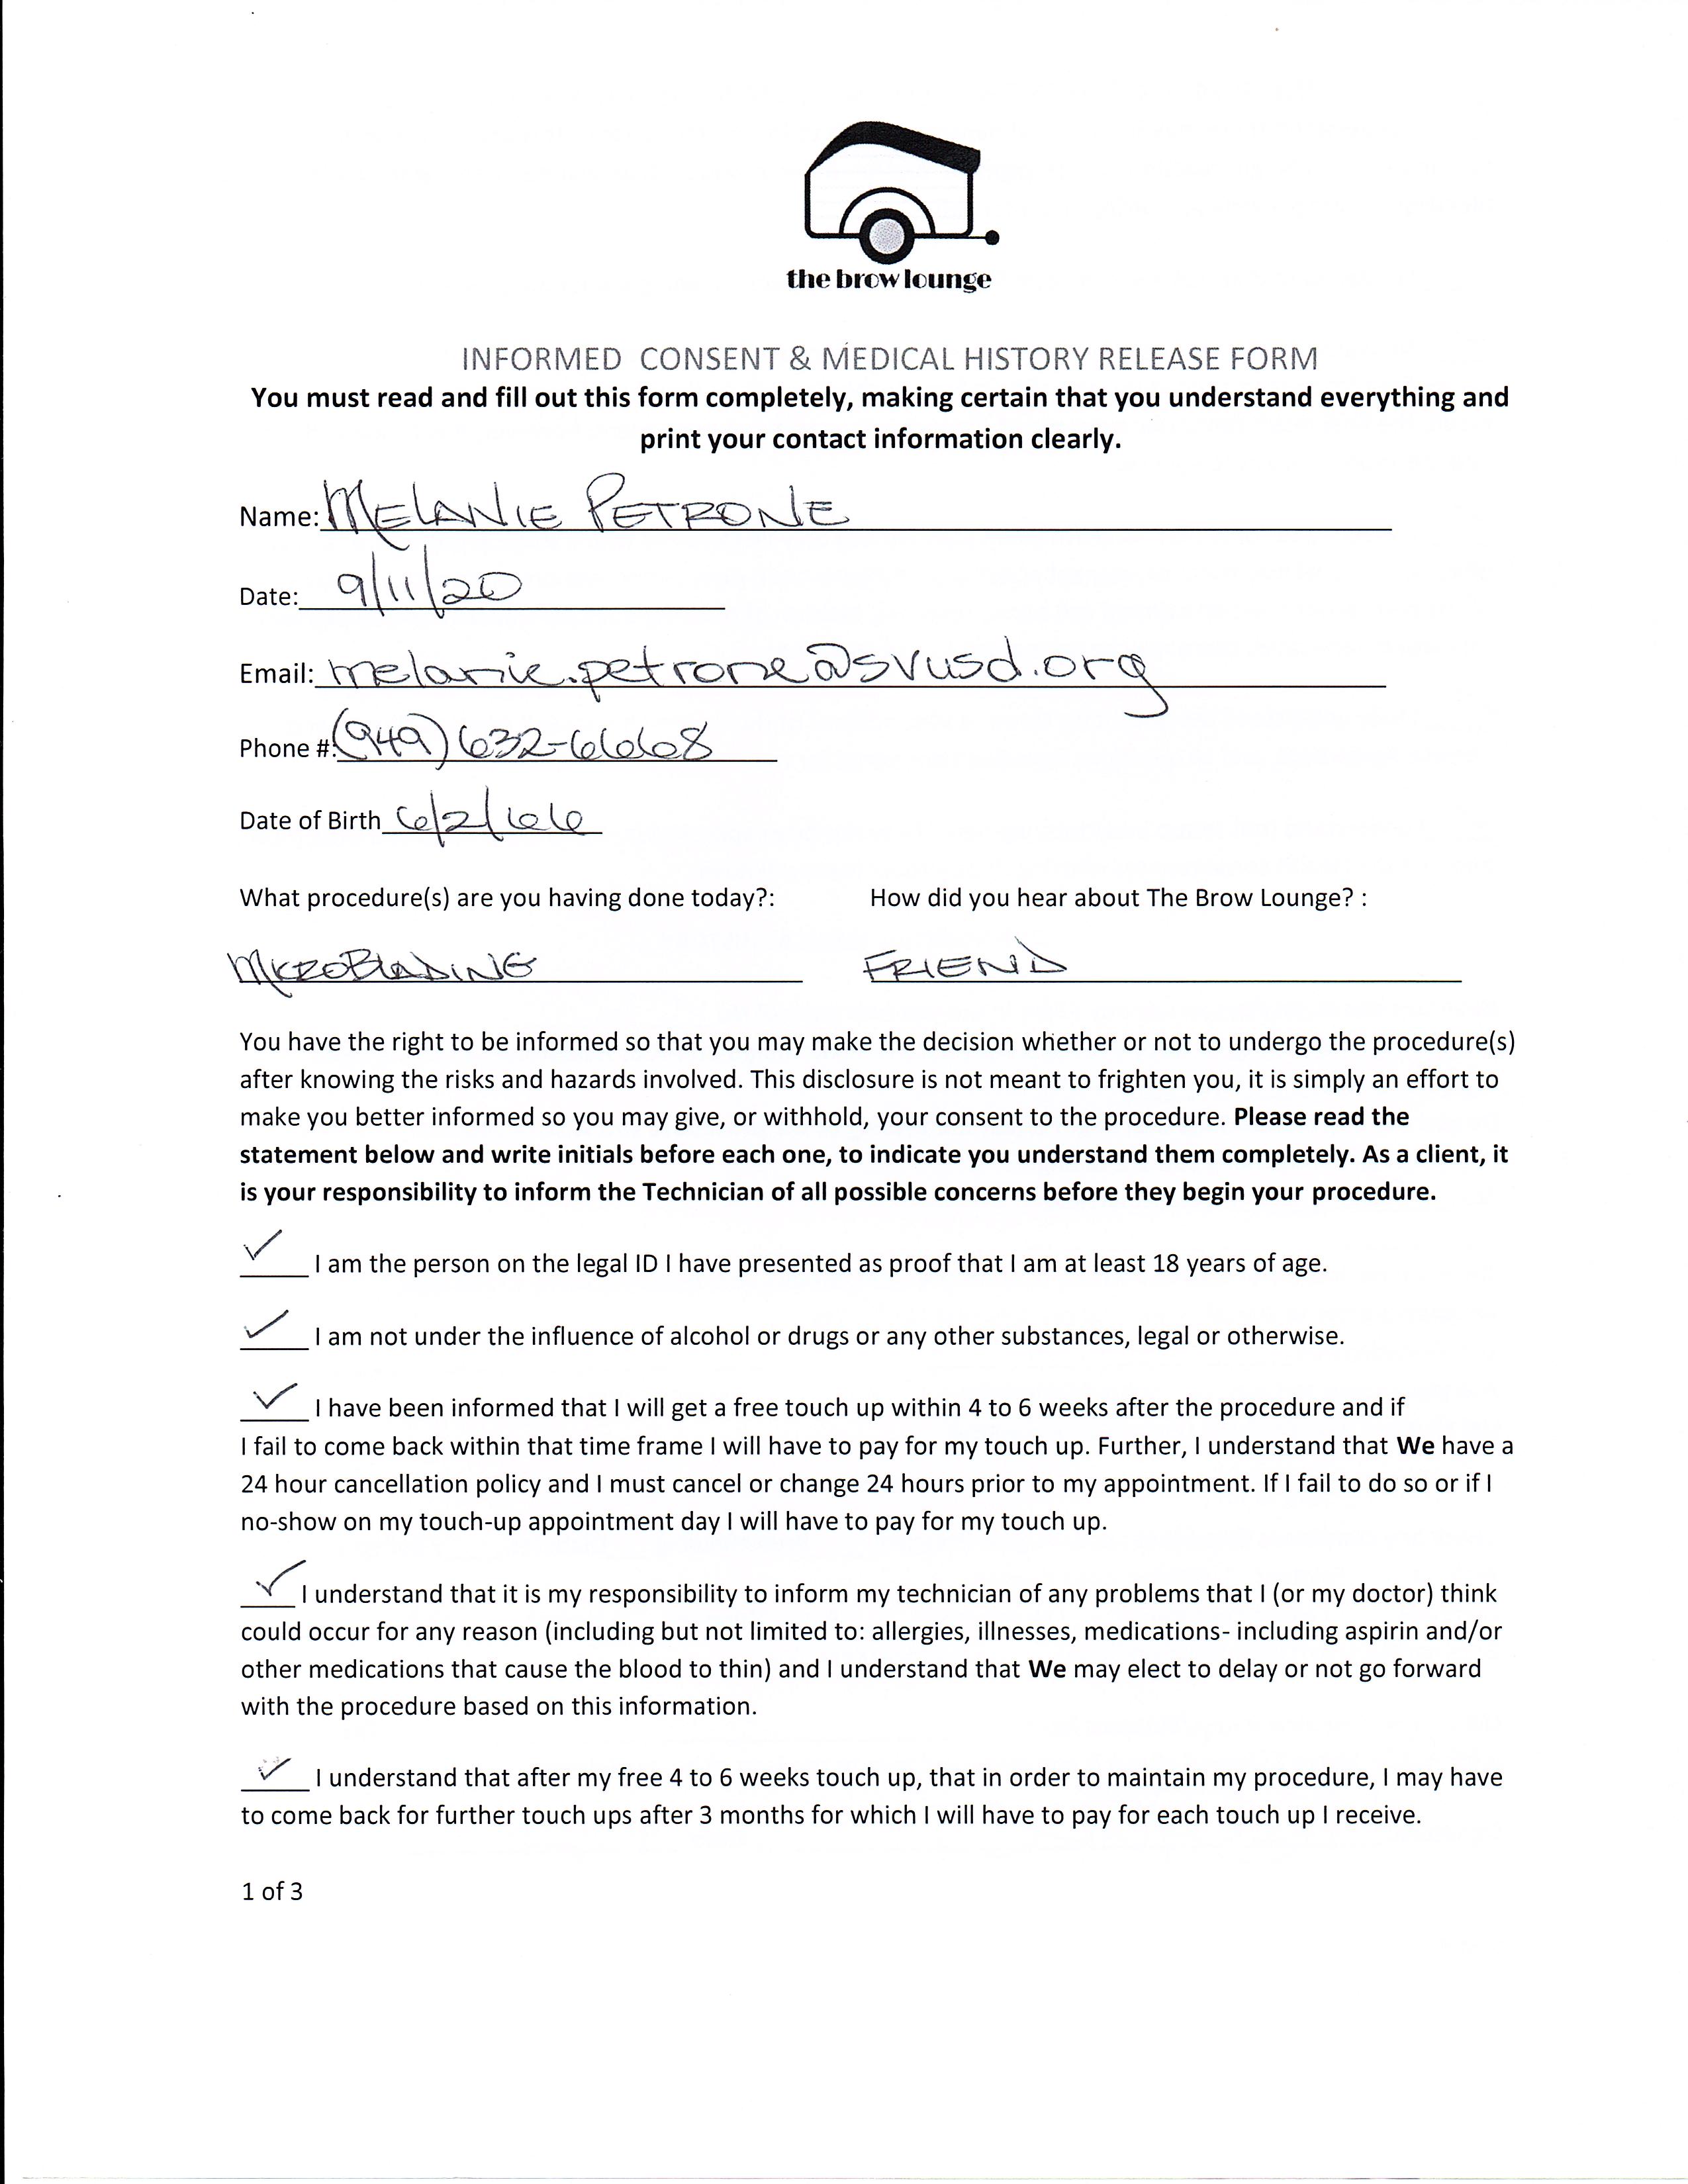 the brow lounge
INFORMED CONSENT & MEDICAL HISTORY RELEASE FORM
You must read and fill out this form completely, making certain that you understand everything and
print your contact information clearly.
Name: MELANIE PETRONE
Date: 9/11/20
Email: melanie.petrone@svusd.org
Phone #: (949) 632-6668
Date of Birth 6/2/66
What procedure(s) are you having done today?: How did you hear about The Brow Lounge? :
MICROBLADING FRIEND
You have the right to be informed so that you may make the decision whether or not to undergo the procedure(s)
after knowing the risks and hazards involved. This disclosure is not meant to frighten you, it is simply an effort to
make you better informed so you may give, or withhold, your consent to the procedure. Please read the
statement below and write initials before each one, to indicate you understand them completely. As a client, it
is your responsibility to inform the Technician of all possible concerns before they begin your procedure.
✓ I am the person on the legal ID I have presented as proof that I am at least 18 years of age.
✓ I am not under the influence of alcohol or drugs or any other substances, legal or otherwise.
✓ I have been informed that I will get a free touch up within 4 to 6 weeks after the procedure and if
I fail to come back within that time frame I will have to pay for my touch up. Further, I understand that We have a
24 hour cancellation policy and I must cancel or change 24 hours prior to my appointment. If I fail to do so or if I
no-show on my touch-up appointment day I will have to pay for my touch up.
✓ I understand that it is my responsibility to inform my technician of any problems that I (or my doctor) think
could occur for any reason (including but not limited to: allergies, illnesses, medications- including aspirin and/or
other medications that cause the blood to thin) and I understand that We may elect to delay or not go forward
with the procedure based on this information.
✓ I understand that after my free 4 to 6 weeks touch up, that in order to maintain my procedure, I may have
to come back for further touch ups after 3 months for which I will have to pay for each touch up I receive.
1 of 3